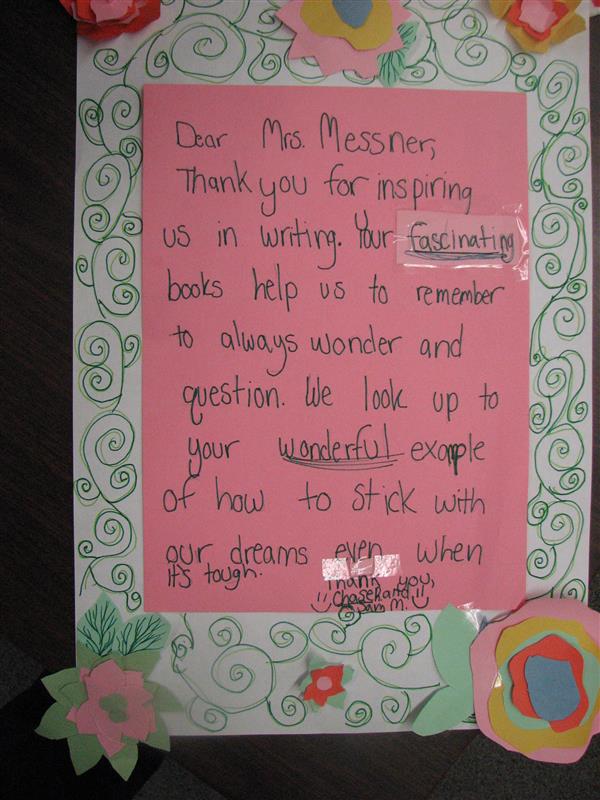 Dear Mrs. Messner,
Thank you for inspiring
us in writing. Your fascinating
books help us to remember
to always wonder and
question. We look up to
your wonderful example
of how to stick with
our dreams even when
it's tough.
Thank you,
Chase R. and
Sam M.